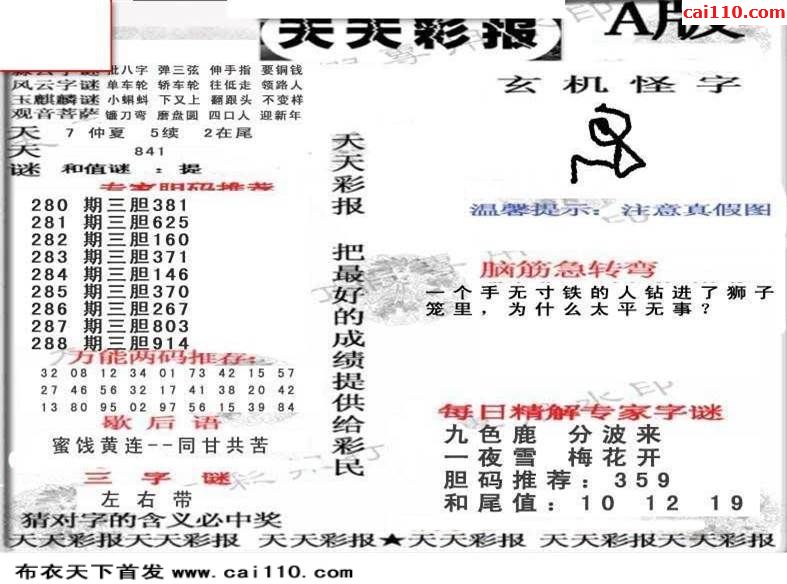 cai110.com
天天彩报 A版
批八字 弹三弦 伸手指 要铜钱
风云字谜 单车轮 轿车轮 往低走 领路人
玉麒麟谜 小蝌蚪 下又上 翻跟头 不变样
观音菩萨 镰刀弯 磨盘圆 四口人 迎新年
天 7 仲夏 5续 2在尾
天 841
谜 和值谜 : 提
专家胆码推荐
280 期三胆381
281 期三胆625
282 期三胆160
283 期三胆371
284 期三胆146
285 期三胆370
286 期三胆267
287 期三胆803
288 期三胆914
万能两码推荐:
32 08 12 34 01 73 42 15 57
27 46 56 32 17 41 38 20 42
13 80 95 02 97 56 15 39 84
歇后语
蜜饯黄连--同甘共苦
三字谜
左右带
猜对字的含义必中奖
天天彩报 把最好的成绩提供给彩民
玄机怪字
温馨提示: 注意真假图
脑筋急转弯
一个手无寸铁的人钻进了狮子
笼里，为什么太平无事？
每日精解专家字谜
九色鹿 分波来
一夜雪 梅花开
胆码推荐: 359
和尾值: 10 12 19
天天彩报天天彩报 天天彩报★天天彩报 天天彩报天天彩报
布衣天下首发 www.cai110.com